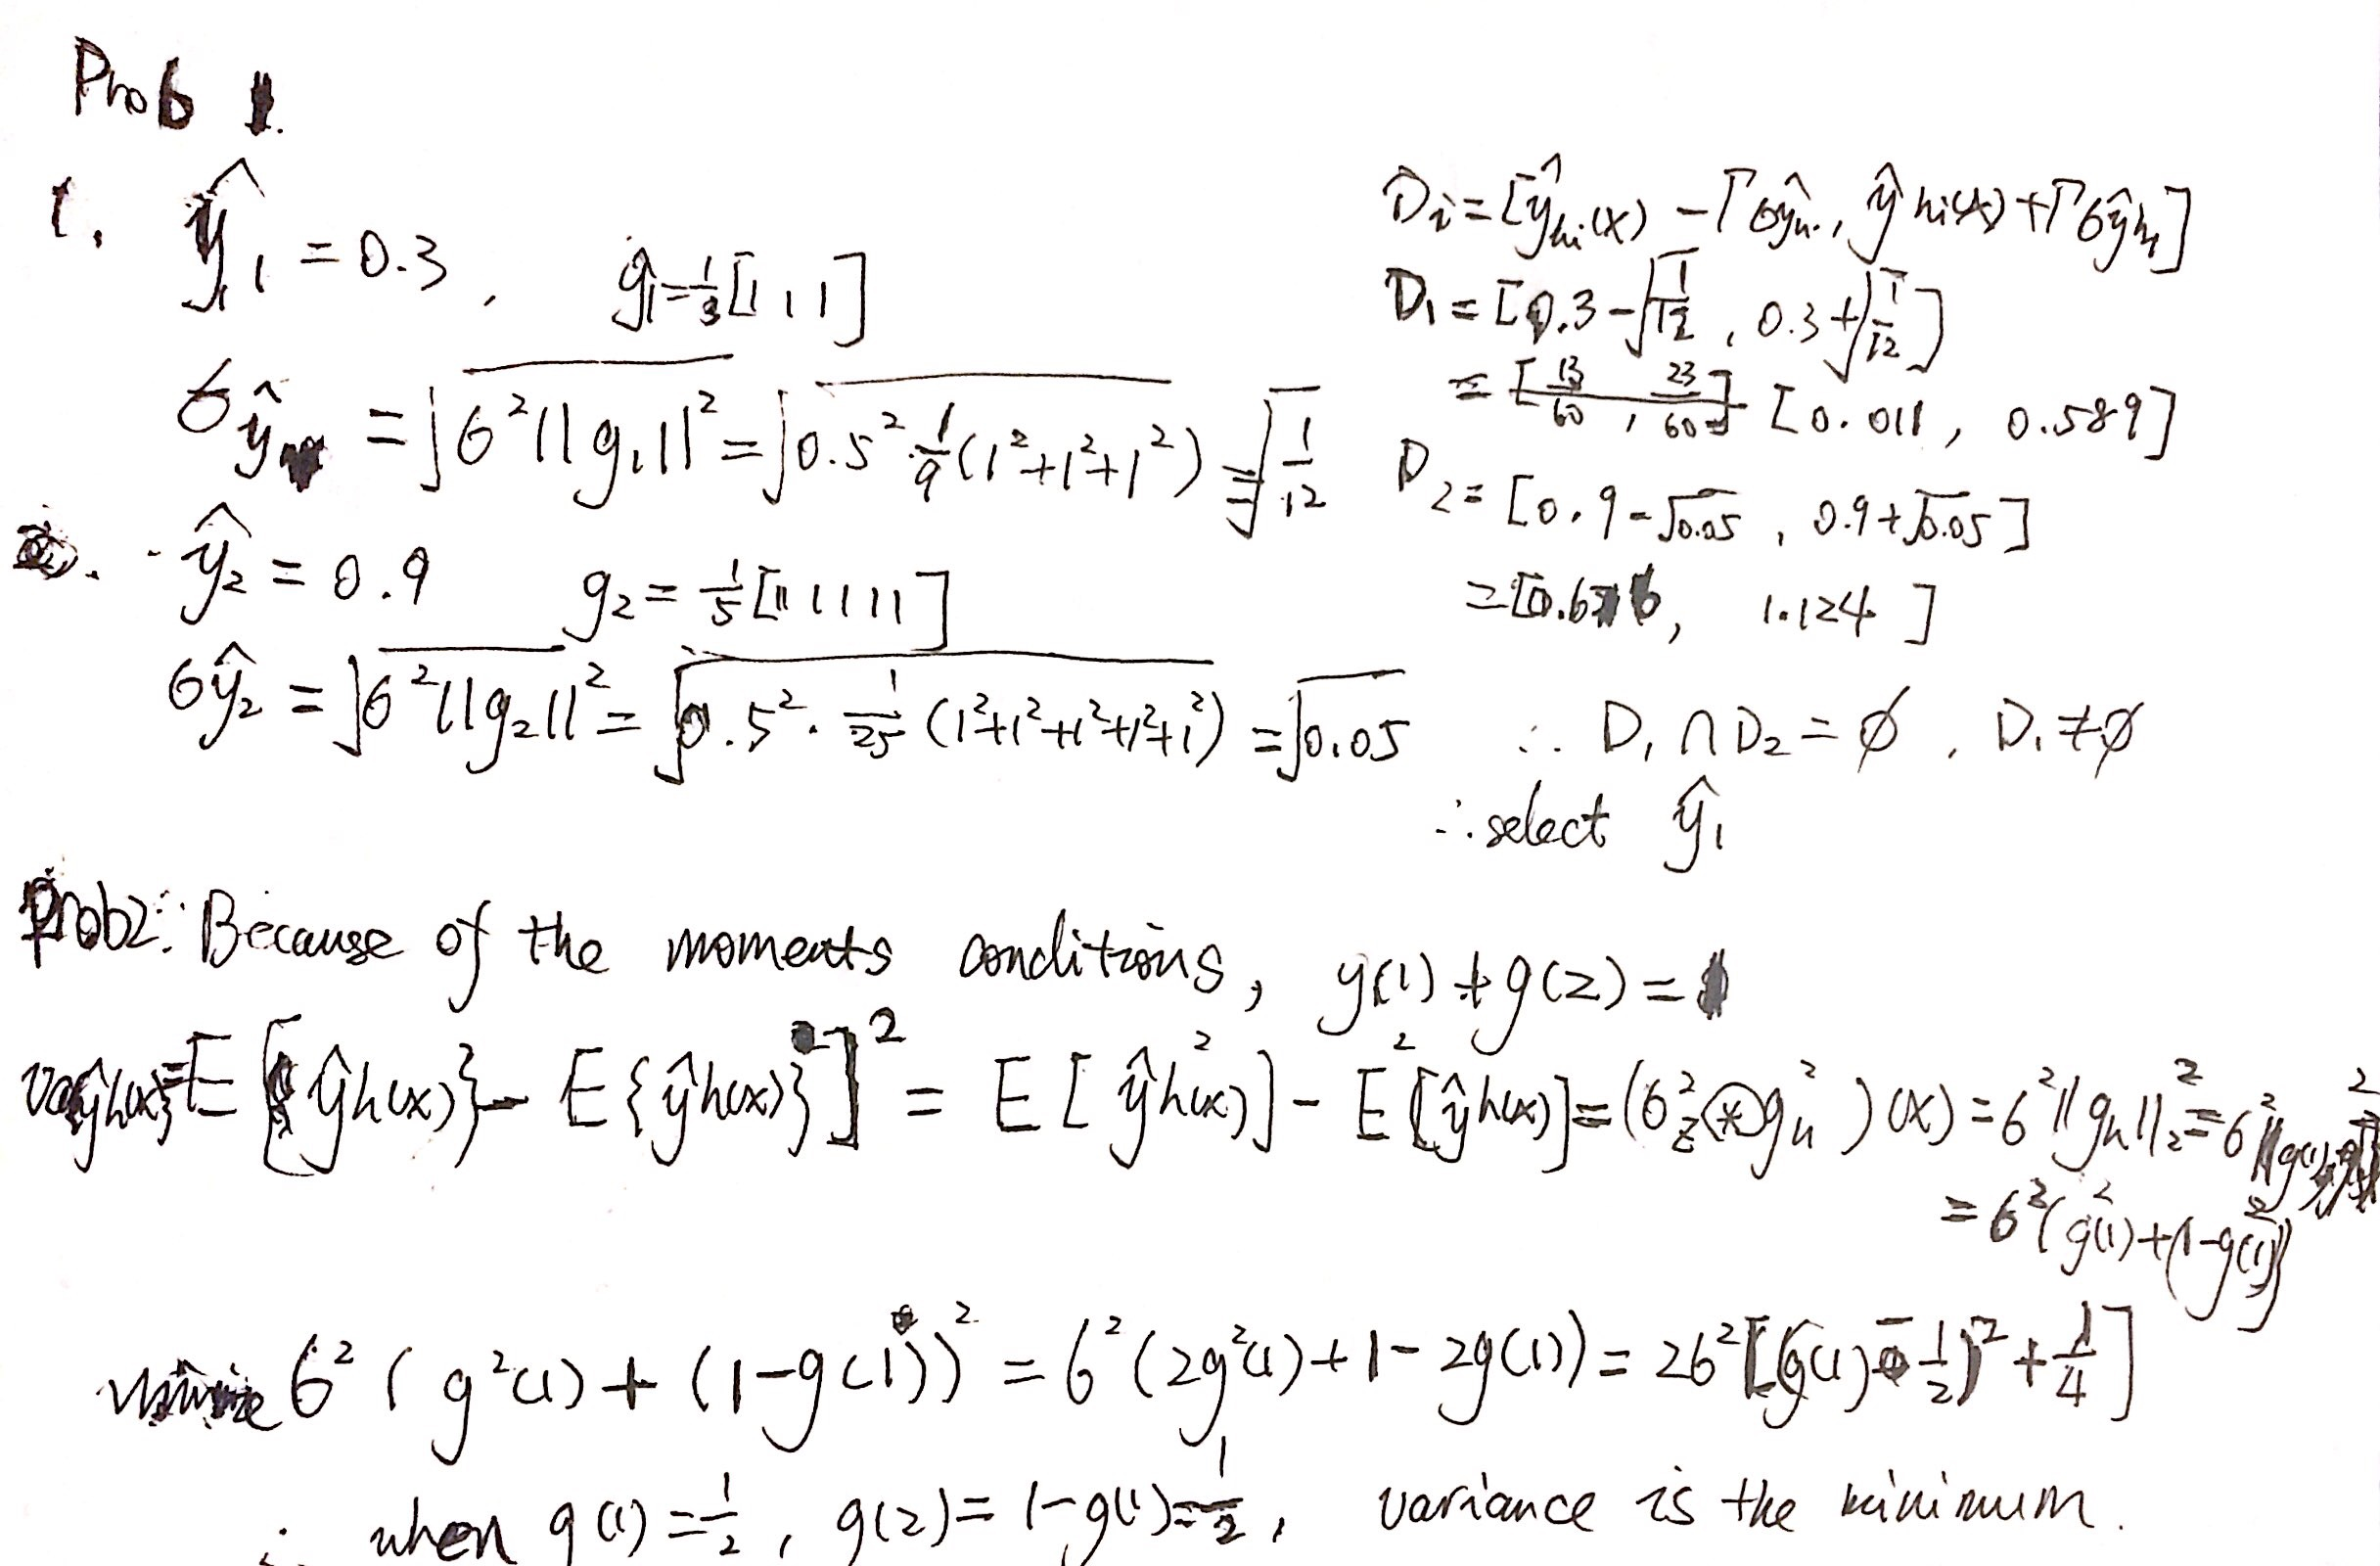 Prob 1.
1. ŷ₁ = 0.3, g₁ = 1/3 [1 1 1]
σŷ = √(σ²||g₁||²) = √(0.5² · 1/9 (1²+1²+1²)) = √(1/12)
ŷ₂ = 0.9 g₂ = 1/5 [1 1 1 1 1]
σŷ₂ = √(σ²||g₂||²) = √(0.5² · 1/25 (1²+1²+1²+1²+1²)) = √0.05
Di = [ŷhi(x) − Γσŷhi, ŷhi(x) + Γσŷhi]
D₁ = [0.3 − √(1/12), 0.3 + √(1/12)]
= [0.011, 0.589]
D₂ = [0.9 − √0.05, 0.9 + √0.05]
= [0.676, 1.124]
∴ D₁ ∩ D₂ = ∅, D₁ ≠ ∅
∴ select ŷ₁
Prob2: Because of the moments conditions, g(1) + g(2) = 1
var{ŷh(x)} = E[{ŷh(x)} − E{ŷh(x)}]² = E[ŷh²(x)] − E²[ŷh(x)] = (σz² ⊛ gh²)(x) = σ²||gh||₂² = σ²
= σ²(g²(1) + (1−g(1))²)
σ²(g²(1) + (1−g(1))² = σ²(2g²(1) + 1 − 2g(1)) = 2σ²[(g(1) − 1/2)² + 1/4]
∴ when g(1) = 1/2, g(2) = 1−g(1) = 1/2, variance is the minimum.